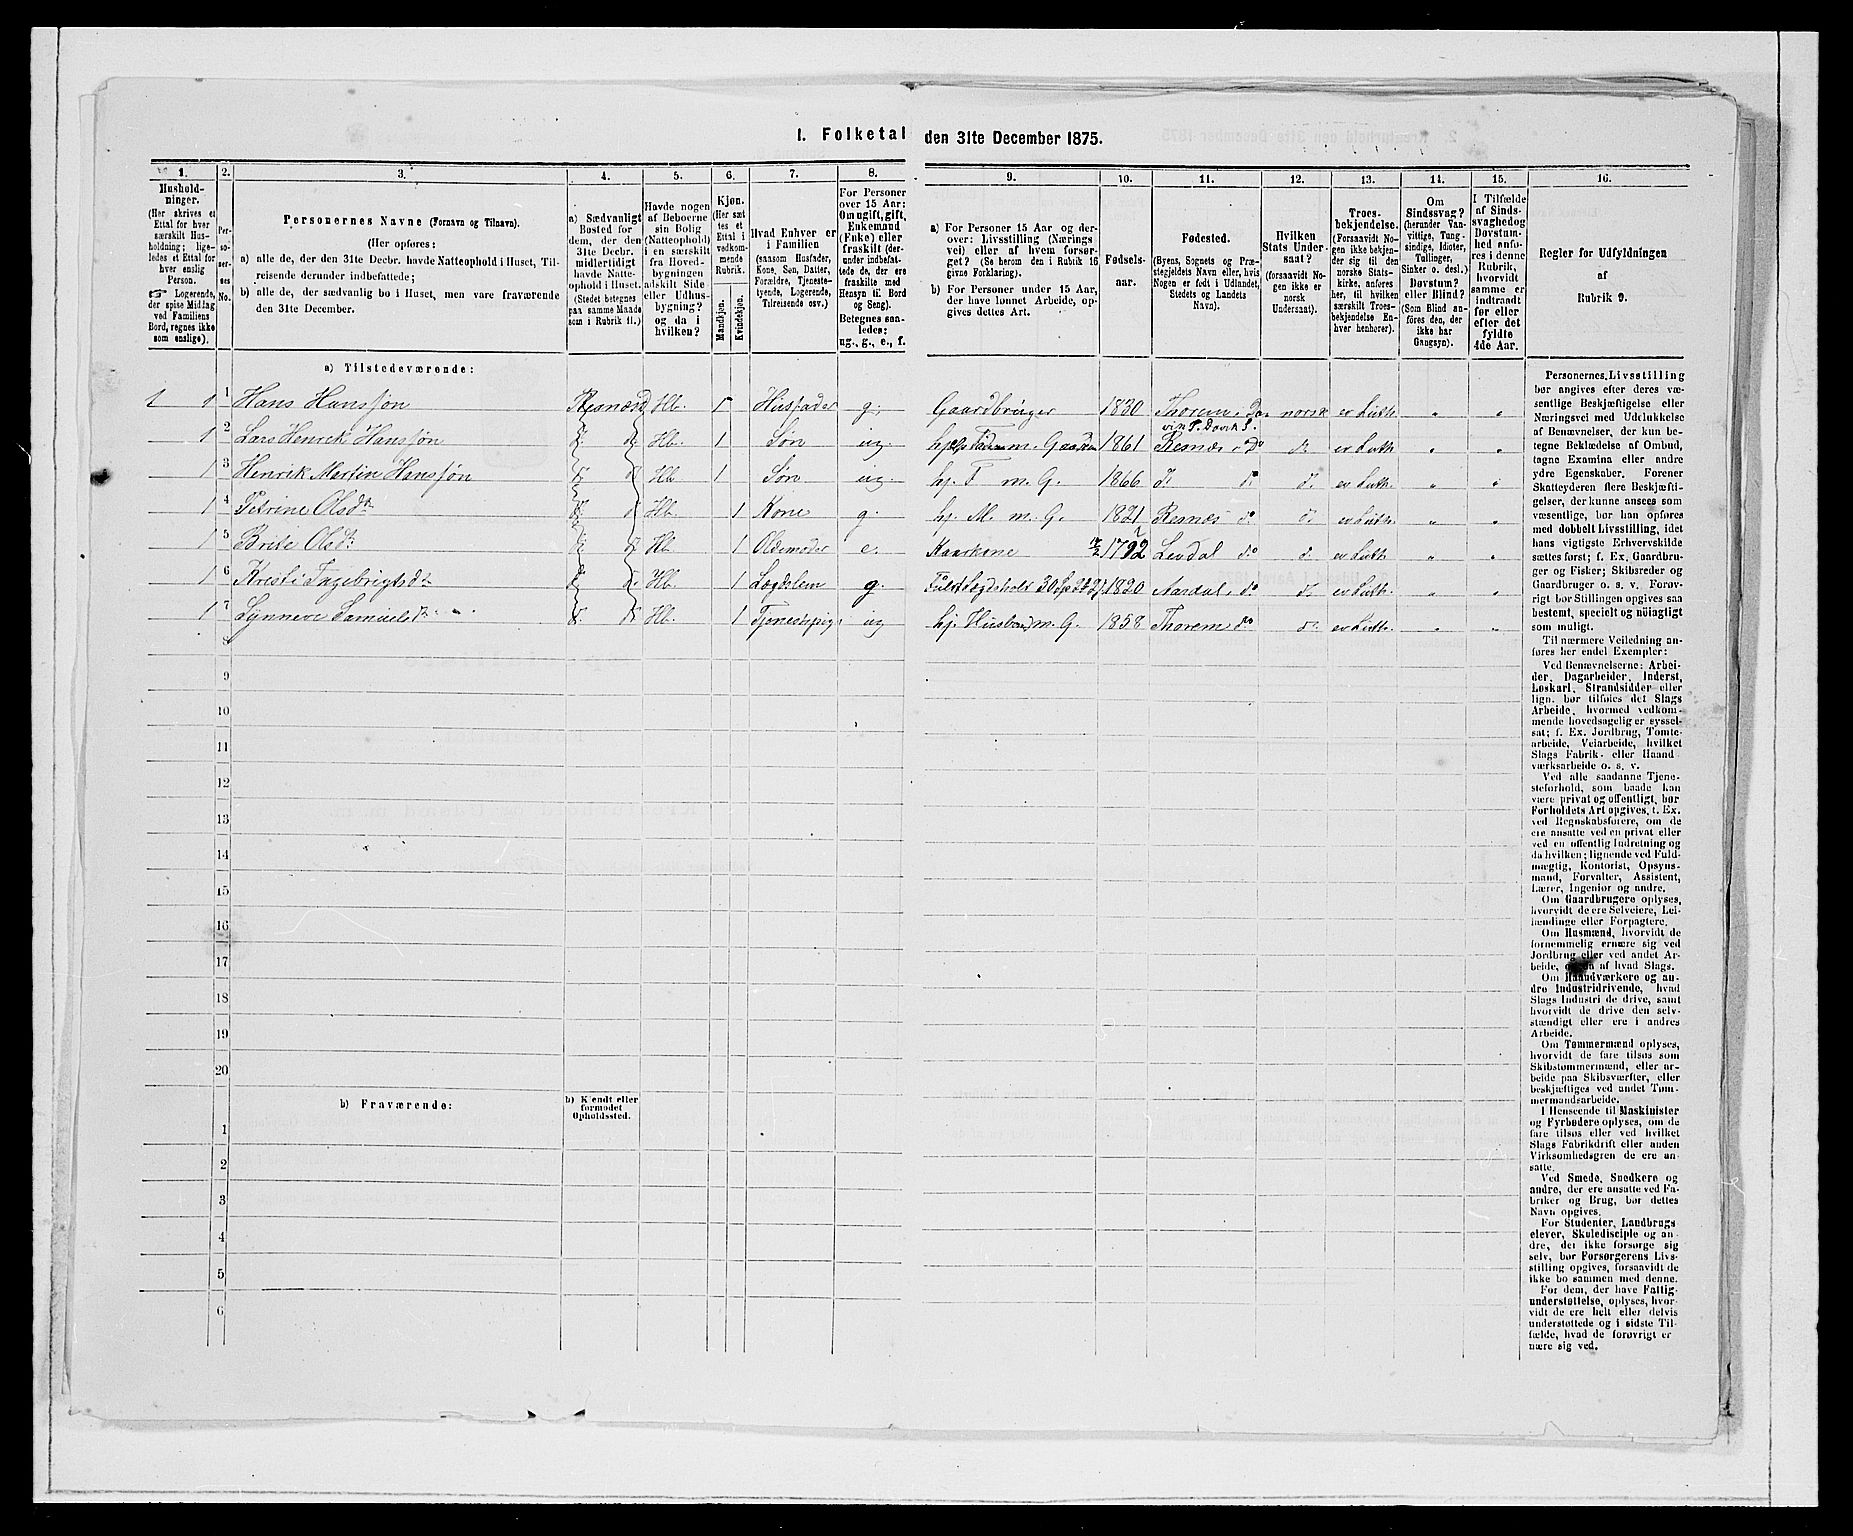 1. Folketal den 31te December 1875.
1. 2. 3. 4. 5. 6. 7. 8. 9. 10. 11. 12. 13. 14. 15. 16.
Hushold-
ninger.
(Her skrives et
Ettal for hver
særskilt Hus-
holdning; lige-
ledes et Ettal for
hver enslig
Person.
Logerende,
der spise Middag
ved Familiens
Bord, regnes ikke
som enslige).
Per-
so-
ner-
nes
No.
Personernes Navne (Fornavn og Tilnavn).
(Her opføres:
a) alle de, der den 31te Decbr. havde Natteophold i Huset, Til-
reisende derunder indbefattede;
b) alle de, der sædvanlig bo i Huset, men vare fraværende
den 31te December.
a) Sædvanligt
Bosted for
dem, der den
31te Decbr.
midlertidigt
havde Natte-
ophold i Huset.
(Stedet betegnes
paa samme Maade
som i Rubrik 11.)
Havde nogen
af Beboerne
sin Bolig
(Natteophold)
i en særskilt
fra Hoved-
bygningen
adskilt Side
eller Udhus-
bygning?
og da i
hvilken?
Kjøn.
(Her sæt-
tes et
Ettal i
vedkom-
mende
Rubrik.
Mandkjøn.
Kvindekjøn.
Hvad Enhver er
i Familien
(saasom Husfader,
Kone, Søn, Datter,
Forældre, Tjeneste-
tyende, Logerende,
Tilreisende osv.)
For Personer
over 15 Aar:
Om ugift, gift,
Enkemand
(Enke) eller
fraskilt (der-
under indbefat-
tede de, der ere
fraskilte med
Hensyn til Bord
og Seng).
Betegnes saa-
ledes:
ug., g., e., f.
a) For Personer 15 Aar og der-
over: Livsstilling (Nærings-
vei) eller af hvem forsør-
get? (Se herom den i Rubrik 16
givne Forklaring).
b) For Personer under 15 Aar,
der have lønnet Arbeide, op-
gives dettes Art.
Fødsels-
aar.
Fødested.
(Byens, Sognets og Præ-
stegjeldets Navn eller, hvis
Nogen er født i Udlandet,
Stedets og Landets
Navn).
Hvilken
Stats Under-
saat?
(forsaavidt No-
gen ikke er
norsk
Undersaat).
Troes-
bekjendelse.
(Forsaavidt No-
gen ikke bekjen-
der sig til den
norske Stats-
kirke, anføres
her, til hvilken
særskilt Troes-
bekjendelse En-
hver henhører).
Om
Sindssvag?
(herunder Van-
vittige, Tung-
sindige, Idioter,
Tullinger,
Sinker o. desl.)
Døvstum?
eller Blind?
(Som Blind an-
føres den, der
ikke har
Gangsyn).
I Tilfælde
af Sinds-
svaghed og
Døvstum-
hed anfø-
res i denne
Rubrik,
hvorvidt
samme er
indtraadt
før eller
efter det
fyldte
4de Aar.
Regler for Udfyldningen
af
Rubrik 9.
a) Tilstedeværende:
1 1 1 Hans Hanssøn Hb. 1 Husfader g. Gaardbruger 1830 norsk ev Luth. " "
1 2 Lars Henrik Hanssøn do Hb. 1 Søn ug. 1861 Resnæs do do ev Luth " "
1 3 Henrik Martin Hanssøn do Hb 1 Søn ug. hj. F m. G. 1866 do do do ev Luth. " "
1 4 Petrine Olsdtr do Hb. 1 Kone g. hj. M. m. G. 1821 Resnæs do do ev Luth " "
1 5 Brite Olsdtr do Hb 1 Oldemoder e. Kaarkone 1792 Levdal do do ev Luth " "
1 6 Kristi do Hb. 1 Lægdslem g. 1820 Aardal do do ev Luth. " "
1 7 Synneve Samuelsdtr do Hb. 1 Tjenestepige ug hj. m. G. 1858 Thorem do do ev Luth. " "
8
9
10
11
12
13
14
15
16
17
18
19
20
b) Fraværende: b) Kjendt eller
formodet
Opholdssted.
1
2
3
4
5
6
Personernes Livsstilling
bør angives efter deres væ-
sentlige Beskjæftigelse eller
Næringsvei med Udelukkelse
af Benævnelser, der kun be-
tegne Beklædelse af Ombud,
tagne Examina eller andre
ydre Egenskaber. Forener
Skatteyderen flere Beskjæfti-
gelser, der kunne ansees som
væsentlige, bør han opføres
med dobbelt Livsstilling, idet
hans vigtigste Erhvervskilde
sættes først; f. Ex. Gaardbru-
ger og Fisker; Skibsreder og
Gaardbruger o. s. v. Forøv-
rigt bør Stillingen opgives saa
bestemt, specielt og nøiagtigt
som muligt.
Til nærmere Veiledning an-
føres her endel Exempler:
Ved Benævnelserne: Arbei-
der, Dagarbeider, Inderst,
Løskarl, Strandsidder eller
lign. bør tilføies det Slags
Arbeide, hvormed vedkom-
mende hovedsagelig er syssel-
sat; f. Ex. Jordbrug, Tomte-
arbeide, Veiarbeide, hvilket
Slags Fabrik- eller Haand-
værksarbeide o. s. v.
Ved alle saadanne Tjene-
steforhold, som baade kan
være privat og offentligt, bør
Forholdets Art opgives, f. Ex.
ved Regnskabsførere, om de
ere ansatte ved en privat eller
ved en offentlig Indretning og
da hvilken; lignende ved Fuld-
mægtig, Kontorist, Opsyns-
mand, Forvalter, Assistent,
Lærer, Ingeniør og andre.
Om Gaardbrugere oplyses,
hvorvidt de ere Selveiere, Lei-
lændinge eller Forpagtere.
Om Husmænd, hvorvidt de
fornemmelig ernære sig ved
Jordbrug eller ved andet Ar-
beide, og da af hvad Slags.
Om Haandværkere og an-
dre Industridrivende, hvad
Slags Industri de drive, samt
hvorvidt de drive den selv-
stændigt eller ere i andres
Arbeide.
Om Tømmermænd oplyses,
hvorvidt de fare tilsøs som
Skibstømmermænd, eller ar-
beide paa Skibsværfter, eller
beskjæftiges ved andet Tøm-
mermandsarbeide.
I Henseende til Maskinister
og Fyrbødere oplyses, om de
fare tilsøs eller ved hvilket
Slags Fabrikdrift eller anden
Virksomhedsgren de ere an-
satte.
Ved Smede, Snedkere og
andre, der ere ansatte ved Fa-
briker og Brug, bør dettes
Navn opgives.
For Studenter, Landbrugs-
elever, Skoledisciple og an-
dre, der ikke forsørge sig
selv, bør Forsørgerens Livs-
stilling opgives, forsaavidt de
ikke bo sammen med denne.
For dem, der have Fattig-
understøttelse, oplyses, hvor-
vidt de ere helt eller delvis
understøttede og i sidste Til-
fælde, hvad de forøvrigt er-
nære sig ved.